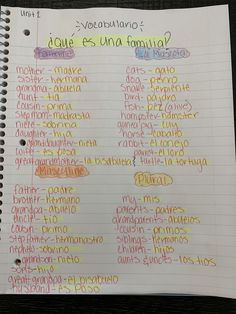 Unit 2
Vocabulario
¿Qué es una familia?
Femenino
mother - madre
sister - hermana
grandma - abuela
aunt - tia
cousin - prima
stepmom - madrasta
niece - sobrina
daughter - hija
granddaughter - nieta
wife - esposa
great grandmother - la bisabuela
La Mascota
cats - gato
dog - perro
snake - serpiente
bird - pajaro
fish - pez
hampster - hamster
guinea pig - cuy
horse - caballo
rabbit - el conejo
turtle - la tortuga
Masculino
father - padre
brother - hermano
grandpa - abuelo
uncle - tio
cousin - primo
step father - hermanastro
nephew - sobrino
grandson - nieto
sons - hijo
great-grandpa - el bisabuelo
husband - esposo
Plural
my - mis
parents - padres
grandparents - abuelos
cousin - primos
siblings - hermanos
children - hijos
aunts & uncles - los tios